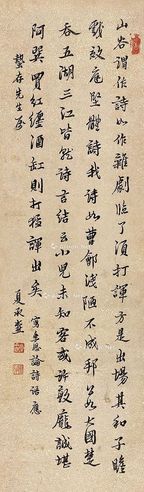 山谷謂作詩如作雜劇臨了須打諢方是出場其和子瞻
戲效庭堅體詩我詩如曹鄶淺陋不成邦公如大國楚
吞五湖三江皆就詩言結云小兒未知客或許敦龐誠堪
阿巽買紅纏酒缸則打猛諢出矣 寫論詩語應
蟄存先生屬 夏承燾